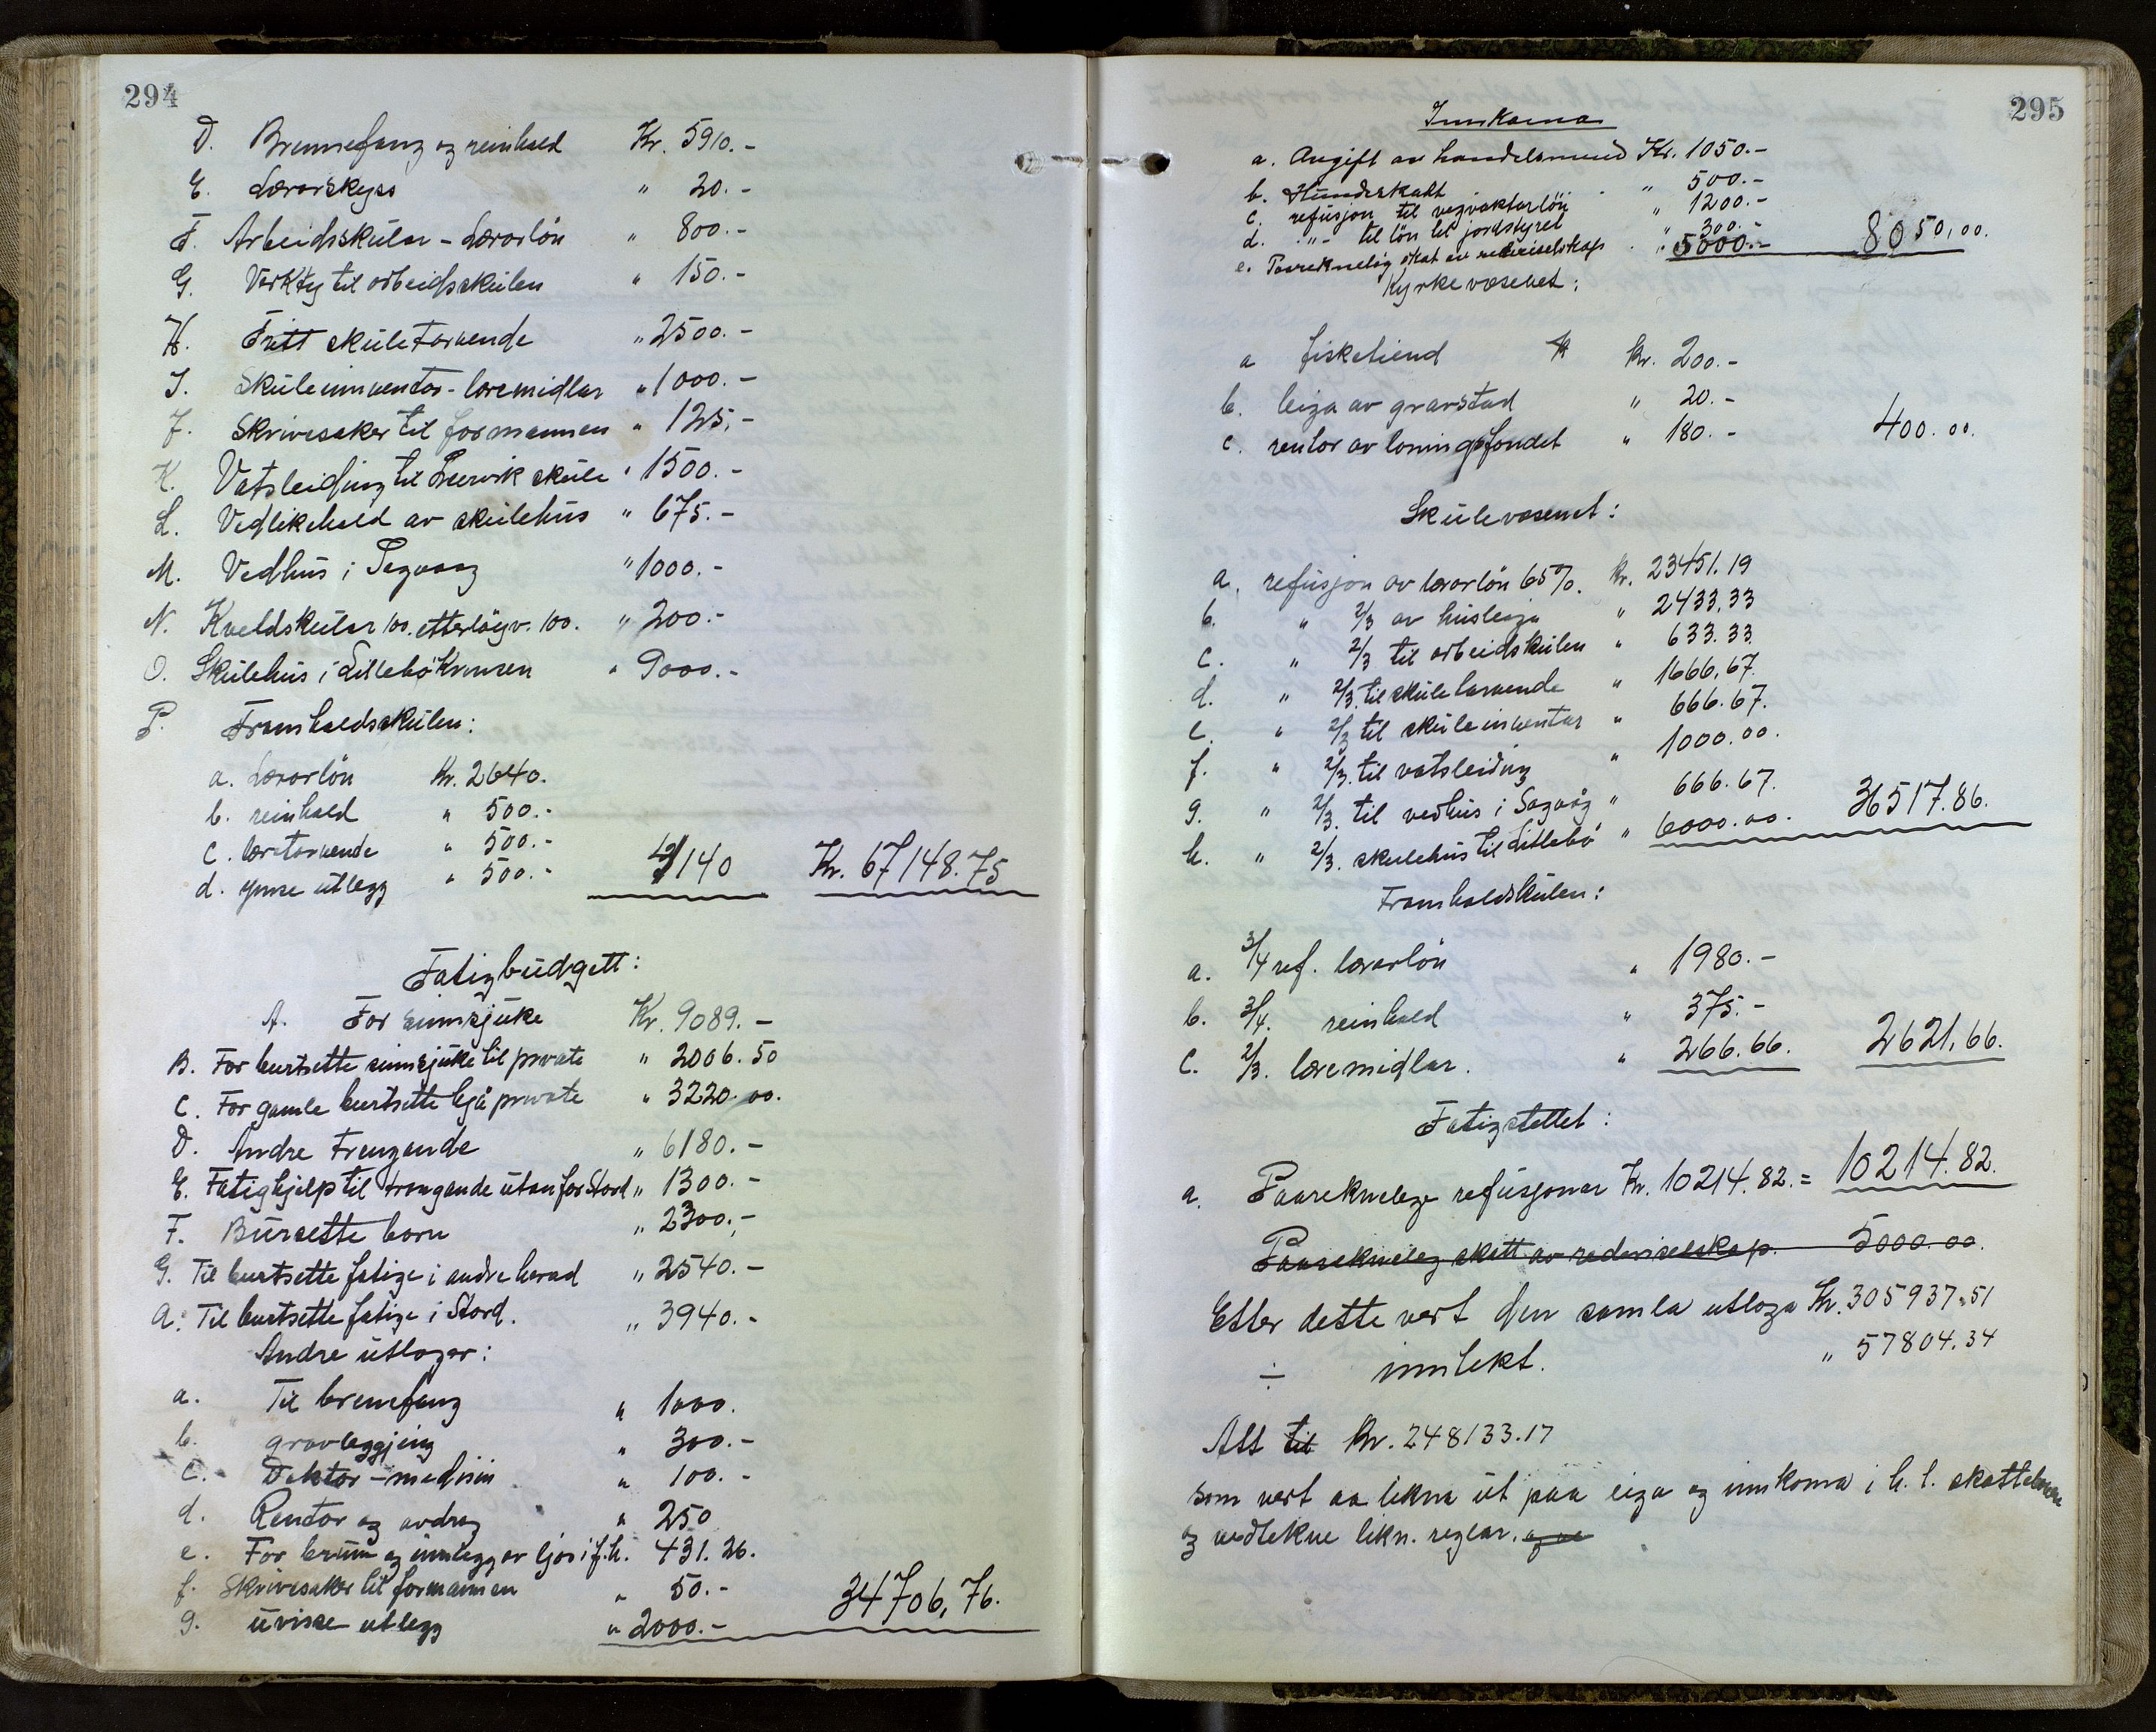 294
D. Brennefang og reinhald Kr. 5910.-
E. Lærarskyss " 20.-
F. Arbeidsskular - Lærarløn " 800.-
G. Verkty til arbeidsskulen " 150.-
H. Fritt skuletarvende " 2500.-
I. Skuleinnventar - læremidlar " 1000.-
J. Skrivesaker til formannen " 125.-
K. Vatsleiding til Leirvik skule " 1500.-
L. Vedlikehald av skulehus " 675.-
M. Vedhus i Sagvaag " 1000.-
N. Kveldskular 100. etterløgv. 100. " 200.-
O. Skulehus i Litlebø Krinsen " 9000.-
P. Framhaldsskulen:
a. Lærarløn Kr. 2640.
b. reinhald " 500.-
c. læretarvende " 500.-
d. ymse utlegg " 500.- 4140 Kr. 67148.75
Fatigbudgett:
A. For sinnsjuke Kr. 9089.-
B. For burtsette sinnsjuke til private " 2006.50
C. For gamle burtsette hjå private " 3220.00.
D. Andre Trengande " 6180.-
E. Fatighjelp til trengande utanfor Stord " 1300.-
F. Bursette born " 2300.-
G. Til burtsette fatige i andre herad " 2540.-
A. Til burtsette fatige i Stord. " 3940.-
Andre utlogor:
a. Til brennefang " 1000.
b. gravleggjing " 300.-
c. Doktor - medisin " 100.-
d. Rentor og avdrag " 250
e. For brunn og innlegg av ljos i f.h. 431.26.
f. Skrivesaker til formannen " 50.-
g. uvisse utlegg " 2000.- 34706,76.
295
Innkoma
a. Avgift av handelsmenn Kr. 1050.-
b. Hundeskatt " 500.-
c. refusjon til vegvaktarløn " 1200.-
d. -"- til løn til jordstyret " 300.-
e. Paareknelig skat av rederiselskap " 5000.- 8050,00.
Kyrkevæsenet:
a fisketiend Kr. 200.-
b. leiga av gravstad " 20.-
c. rentor av løningsfondet " 180.- 400.00.
Skulevæsenet:
a. refusjon av lærarløn 65%. Kr. 23451.19
b. " 2/3 av husleiga " 2433,33
c. " 2/3 til arbeidskulen " 633.33
d. " 2/3. til skuletarvende " 1666,67.
e. " 2/3 til skuleinventar " 666.67.
f. " 2/3. til vatsleiding " 1000.00.
g. " 2/3. til vedhus i Sagvåg " 666.67.
h. " 2/3. skulehus til Litlebø " 6000.00. 36517.86.
Framhaldskulen:
a. 3/4 ref. lærarløn " 1980.-
b. 3/4. reinhald " 375.-
c. 2/3. læremidlar. " 266.66. 2621,66.
Fatigstellet:
a. Paareknelege refusjonar Kr. 10214.82. = 10214.82.
Paareknelig skatt av rederiselskap. 5000.00.
Etter dette vert den samla utloga Kr. 305937.51
÷ inntekt. " 57804.34
Att til Kr. 248133.17
som vert aa likna ut paa eiga og innkoma i h. t. skattelovene
og vedtekne likn. reglar.